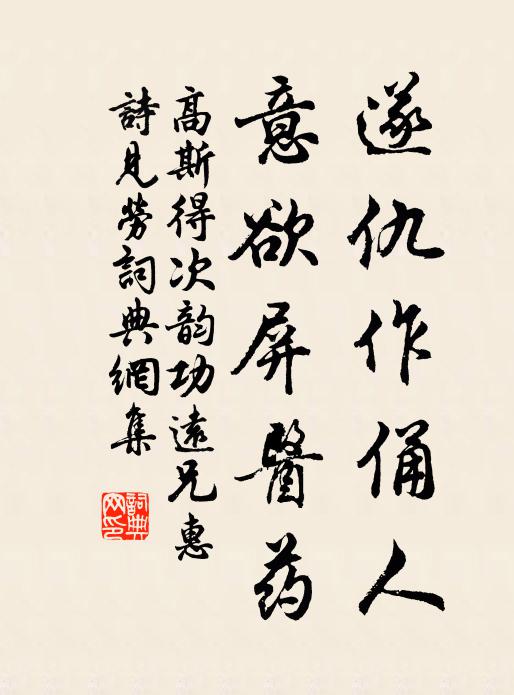 遂仇作俑人
意欲屏醫药
高斯得次韵功遠兄惠
詩見勞詞典網集
詞典网印